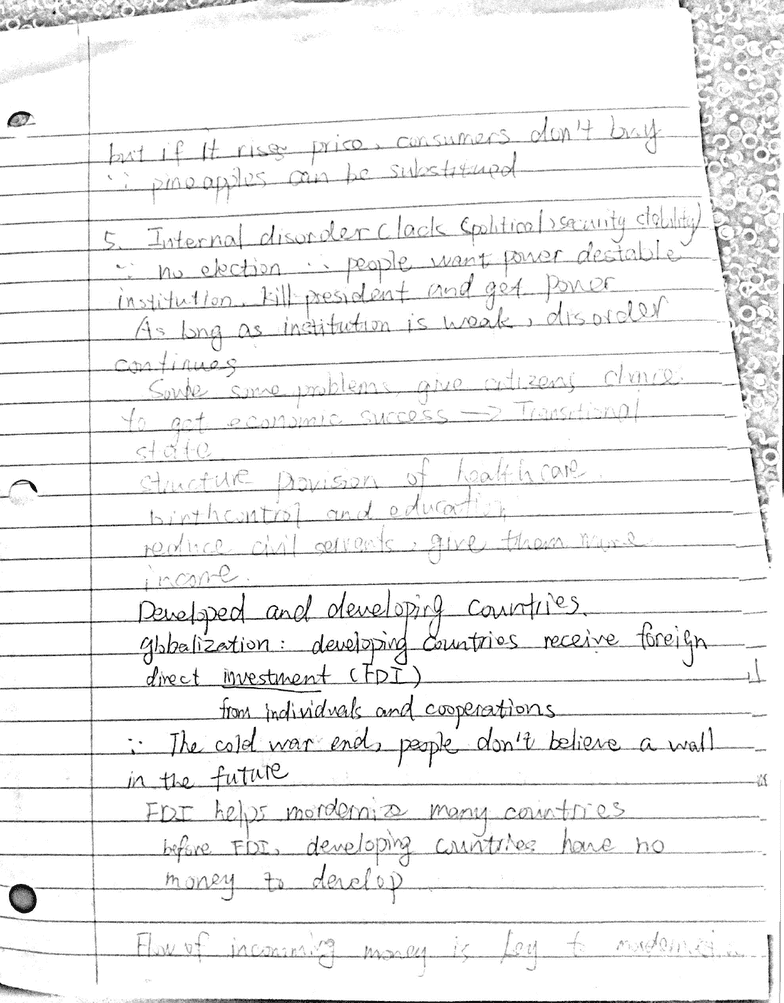 but if it rises price, consumers don't buy
∵ pineapples can be substitued
5. Internal disorder (lack (political, security stability)
∵ no election ∵ people want power destable
institution, kill president and get power
As long as institution is weak, disorder
continues
some problems, give citizens chance
to get economic success → Transitional
state
structure provision of healthcare
birthcontrol and education
reduce civil servents, give them more
income.
Developed and developing countries.
globalization: developing countries receive foreign
direct investment (FDI)
from individuals and cooperations
∵ The cold war ends, people don't believe a wall
in the future
FDI helps mordernize many countries
before FDI, developing countries have no
money to develop
Flow of incomming money is key to